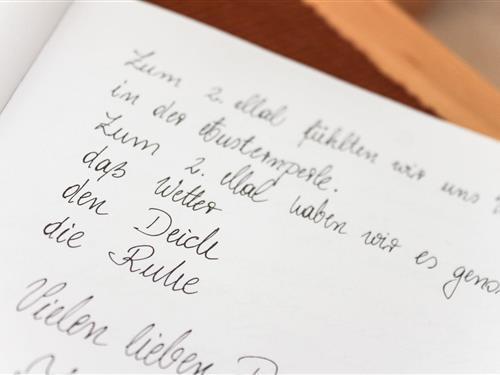 Zum 2. Mal fühlten wir uns
in der Austernperle.
Zum 2. Mal haben wir es geno
daß Wetter
den Deich
die Ruhe
Vielen lieben D